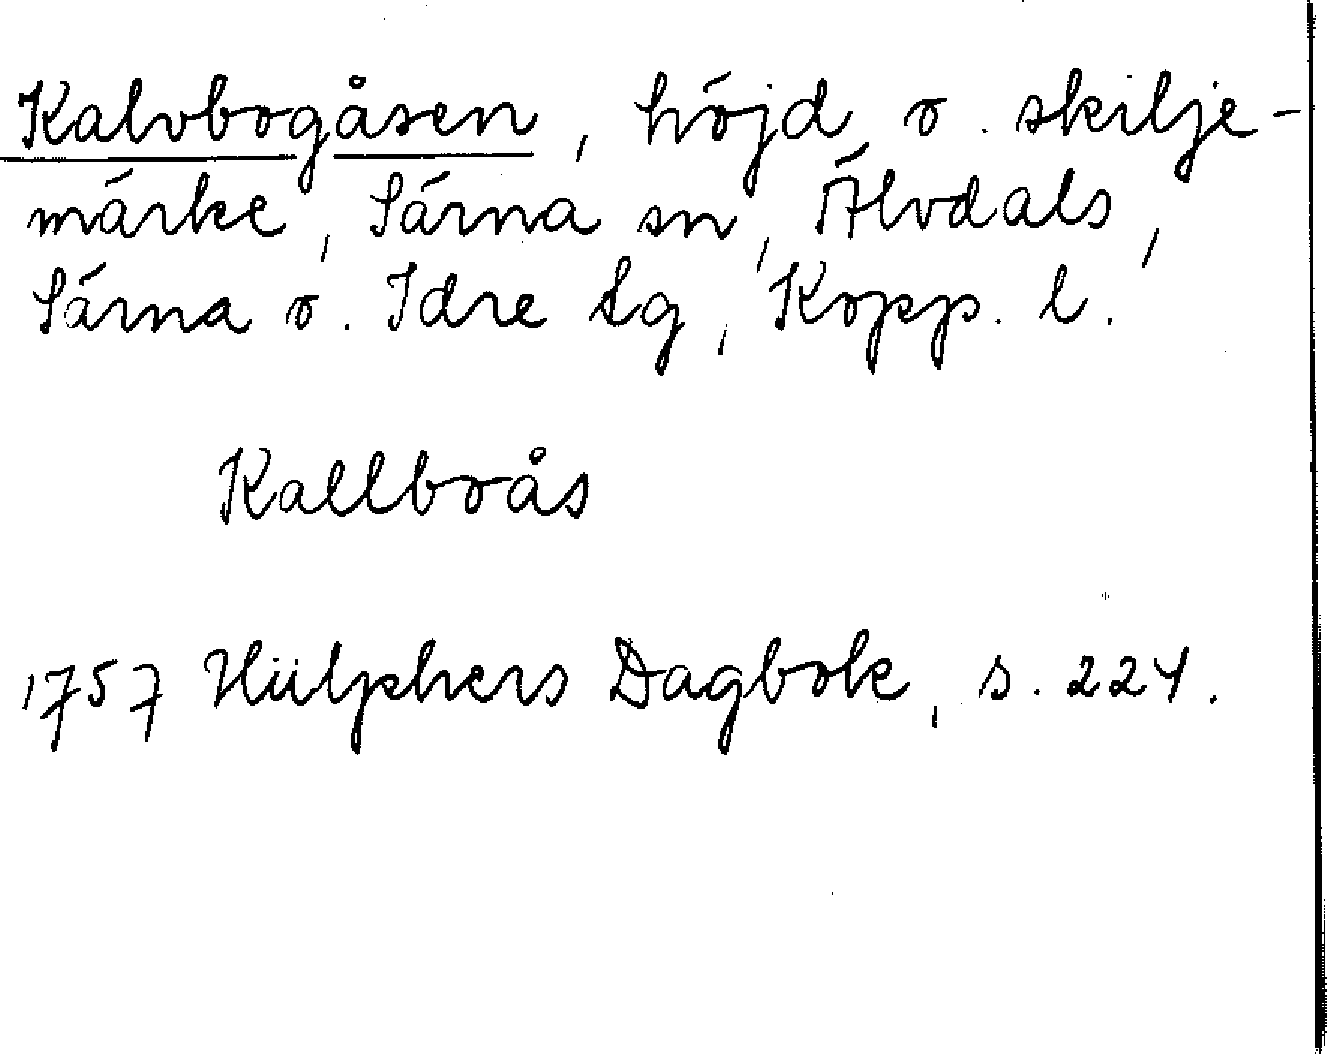 Kalvbogåsen, höjd o. skilje-
märke, Särna sn, Älvdals,
Särna o. Idre tg, Kopp. l.
Kallboås
1757 Hülphers Dagbok, s. 224.